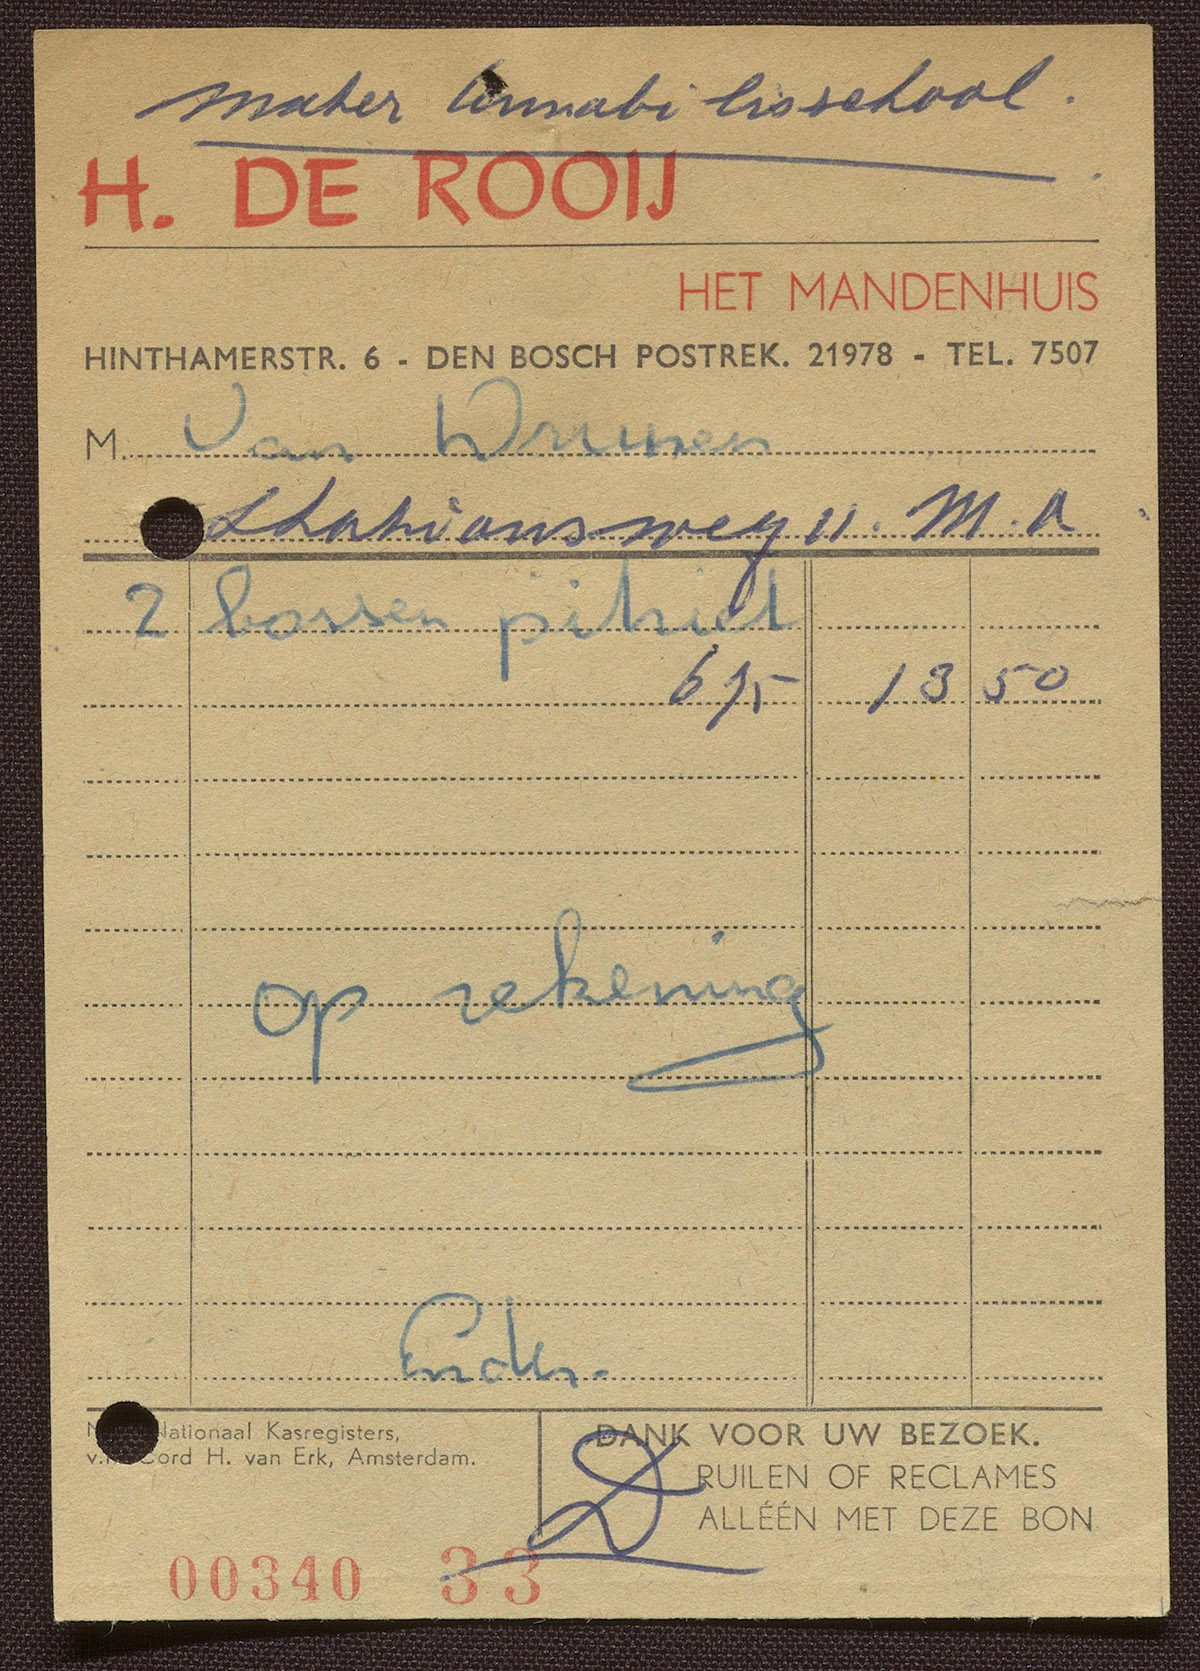 Mater Amabilisschool.
H. DE ROOIJ
HET MANDENHUIS
HINTHAMERSTR. 6 - DEN BOSCH POSTREK. 21978 - TEL. 7507
M. Van Drunen
Stationsweg 11. M.A
2 bossen pitriet
6,75 13 50
op rekening
Nationaal Kasregisters,
Cord H. van Erk, Amsterdam.
DANK VOOR UW BEZOEK.
RUILEN OF RECLAMES
ALLÉÉN MET DEZE BON
00340 33